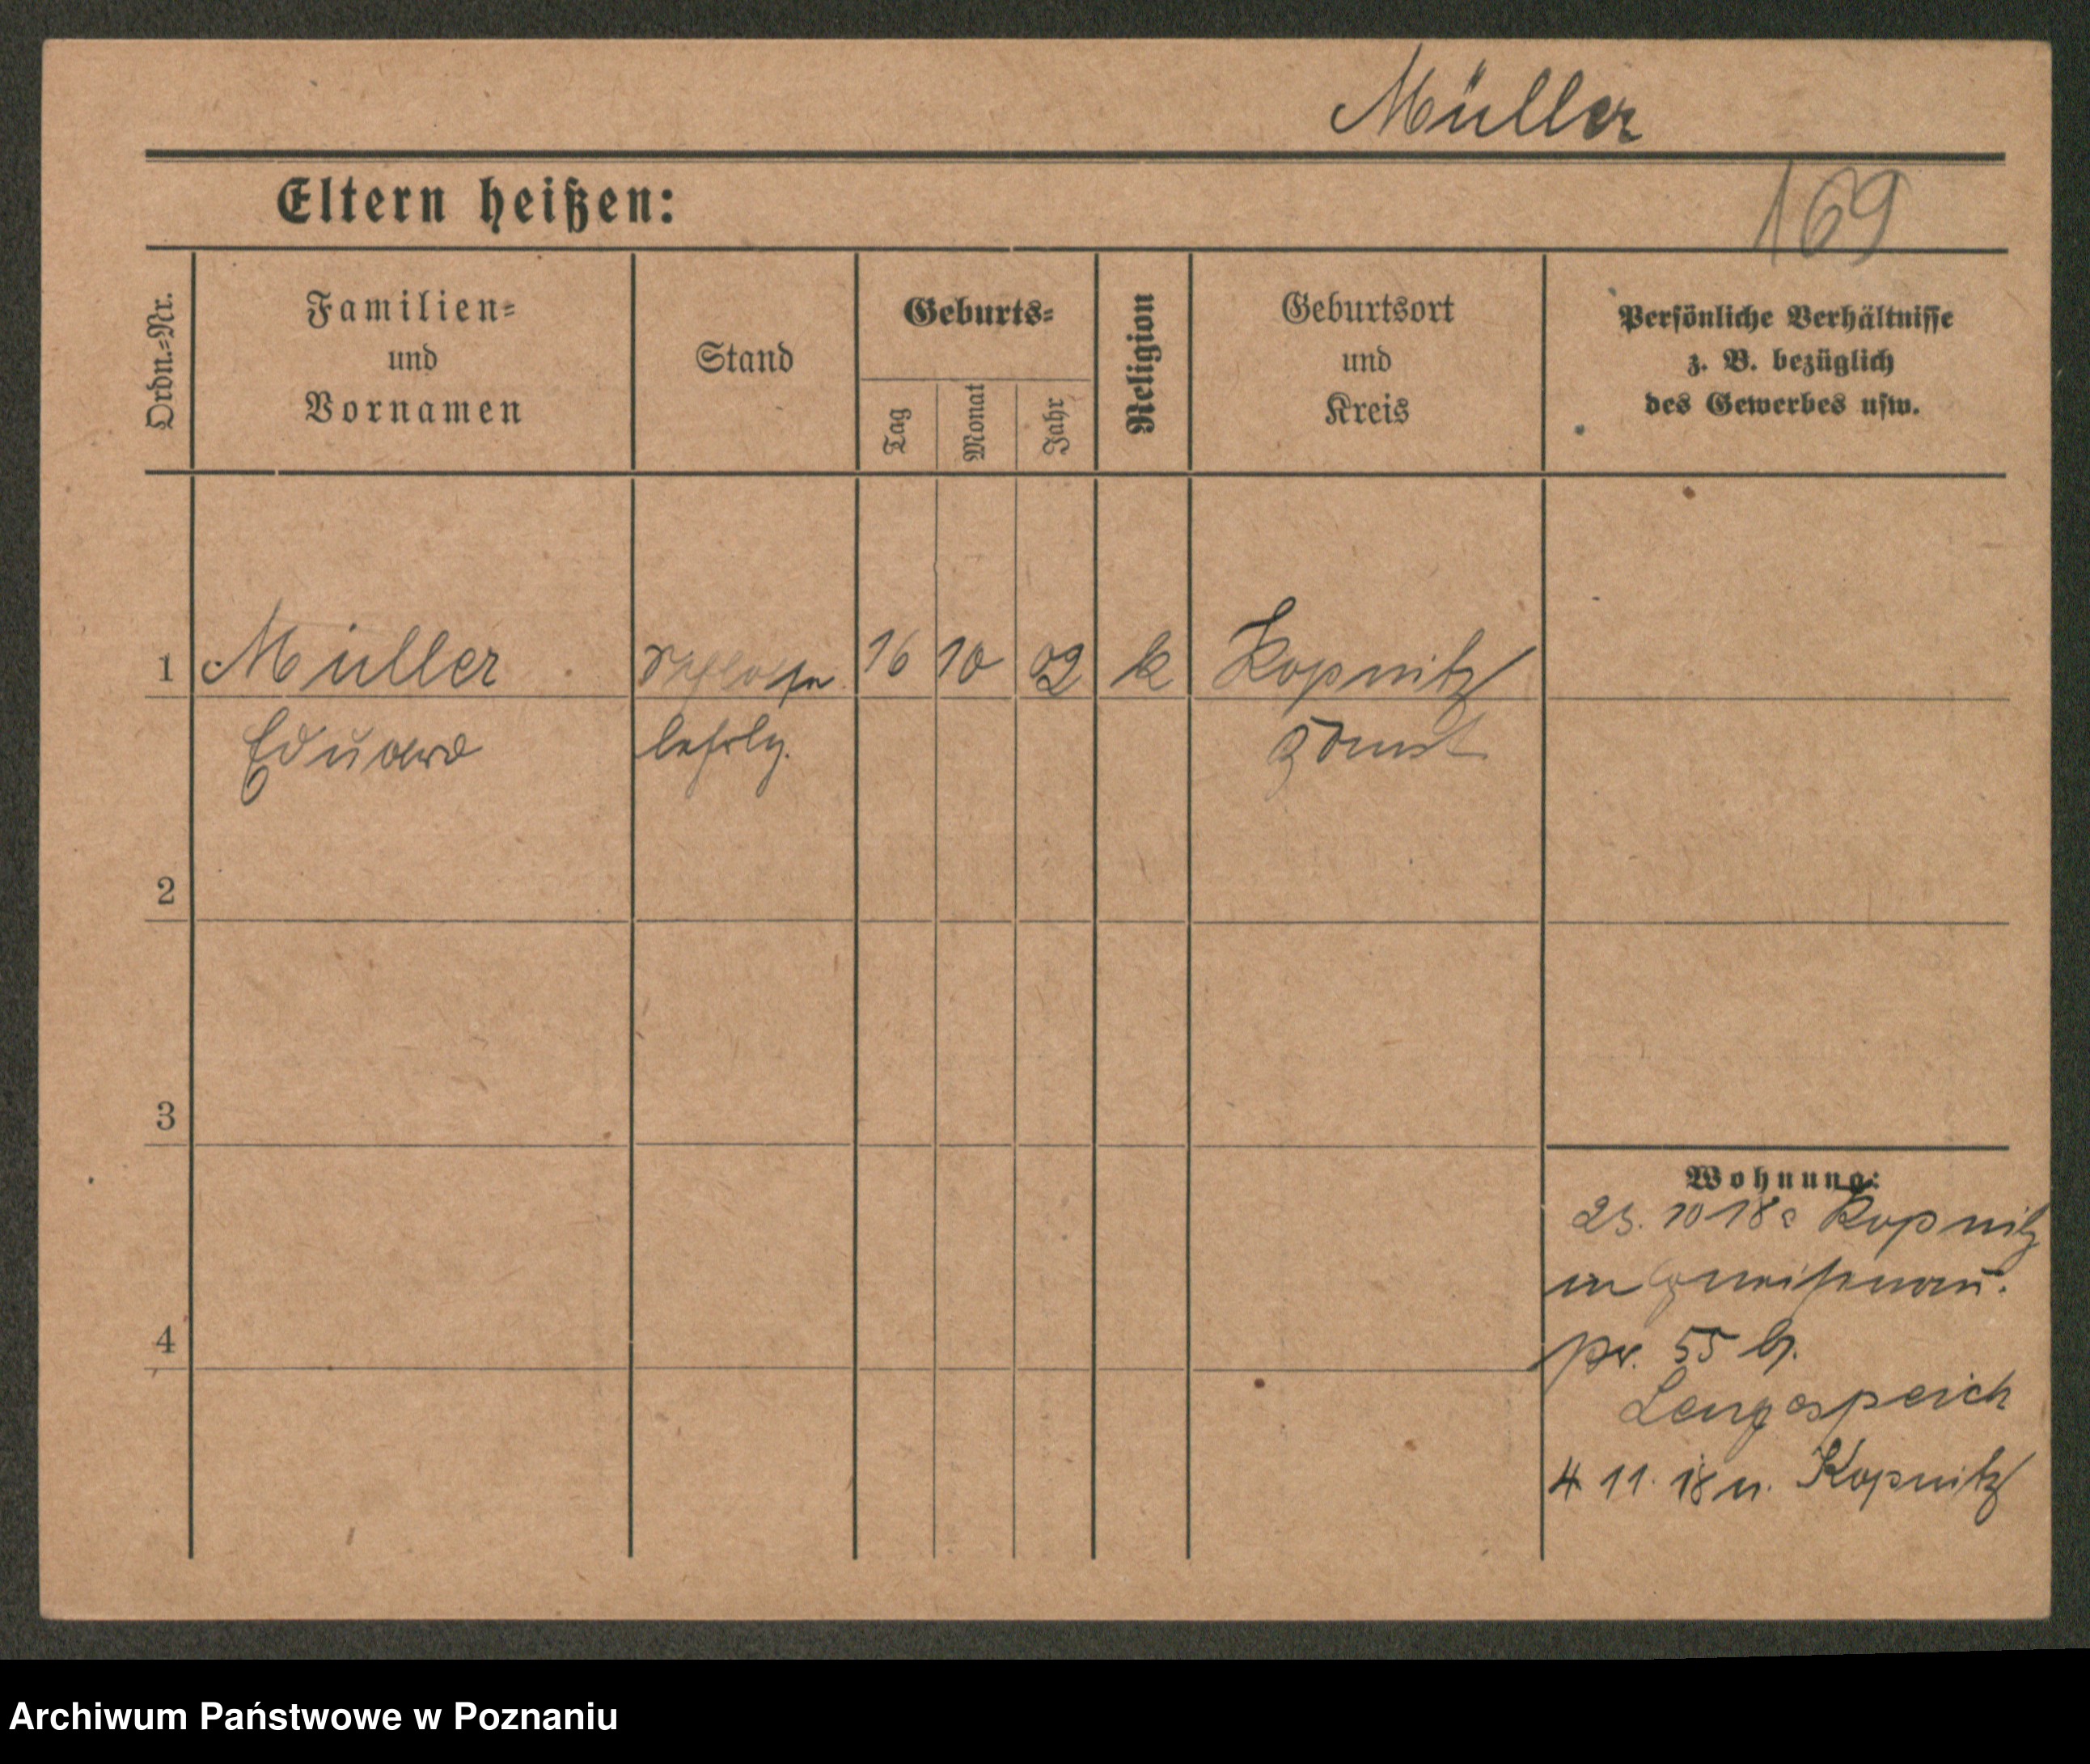 Müller
Eltern heißen:
169
Ordn.-Nr.
Familien-
und
Vornamen
Stand
Geburts-
Tag
Monat
Jahr
Religion
Geburtsort
und
Kreis
Persönliche Verhältnisse
z. B. bezüglich
des Gewerbes usw.
1
Müller
16
10
02
k
Kopnitz
Eduard
lehrlg.
Bomst
2
3
4
Wohnung:
23. 10 18 Kopnitz
pr. 55 b.
4 11. 18 n. Kopnitz
Archiwum Państwowe w Poznaniu